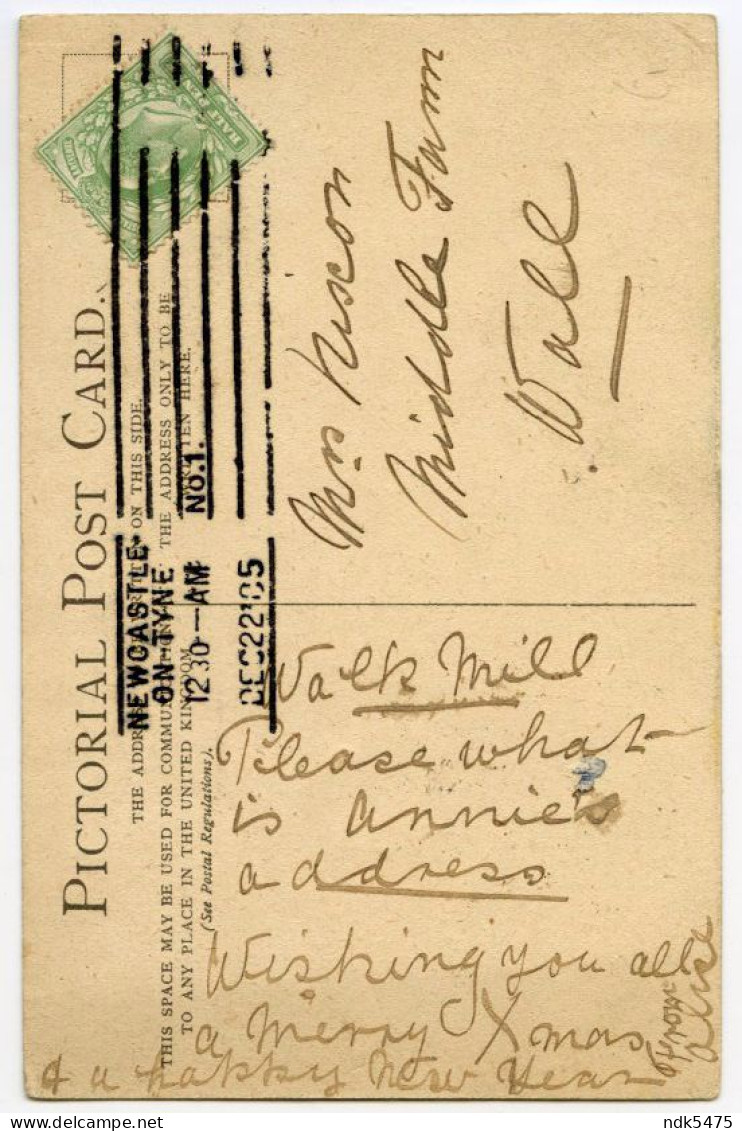 PICTORIAL POST CARD.
THE ADDRESS ON THIS SIDE.
THIS SPACE MAY BE USED FOR COMMUNICATION
TO ANY PLACE IN THE UNITED KINGDOM
(See Postal Regulations).
THE ADDRESS ONLY TO BE
WRITTEN HERE.
HALF PENNY
NEWCASTLE
ON-TYNE
12 30-AM
NO.1.
DEC 22 '05
Mrs Nixon
Middle Farm
Wall
Walk Mill
Please what
is annie's
address
Wishing you all
a merry Xmas
& a happy New Year
from
ndk5475
delcampe.net